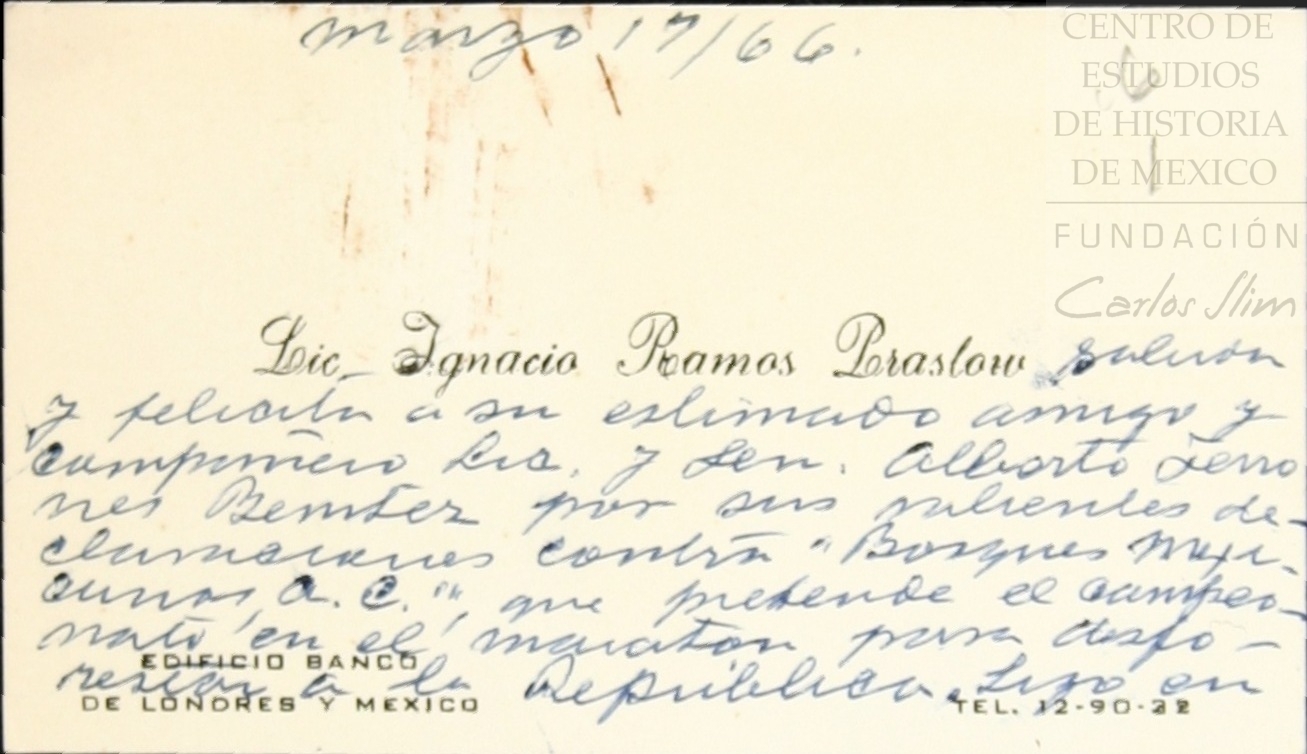 marzo 17/66.
CENTRO DE
ESTUDIOS
DE HISTORIA
DE MEXICO
FUNDACIÓN
Carlos Slim
Lic. Ignacio Ramos Praslow saluda
y felicita a su estimado amigo y
compañero Lic. y Sen. Alberto Terro
nes Benitez por sus valientes de-
claraciones contra "Bosques Mexi-
canos, A. C.", que pretende el campeo-
nato en el maraton para desfo-
restar a la República. Sigo en
EDIFICIO BANCO
DE LONDRES Y MEXICO
TEL. 12-90-32